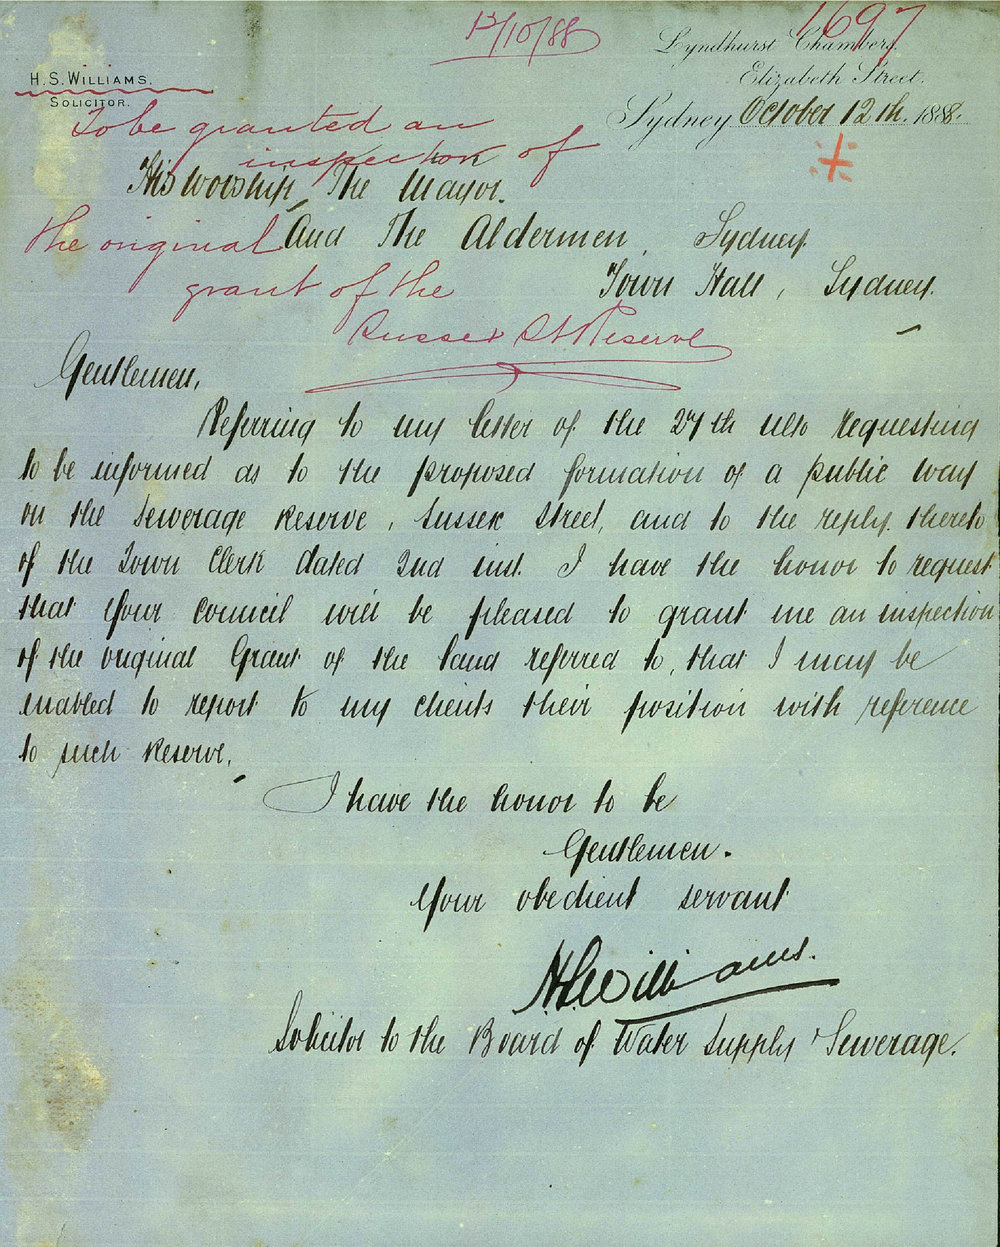 12/10/88
1697
Lyndhurst Chambers,
Elizabeth Street.
H. S. WILLIAMS.
SOLICITOR.
Sydney October 12th. 1888.
To be granted an
inspection of
the original
grant of the
Sussex St Reserve
His Worship, The Mayor.
And The Aldermen, Sydney
Town Hall, Sydney.
Gentlemen,
Referring to my letter of the 27th ulto requesting
to be informed as to the proposed formation of a public way
on the Sewerage Reserve, Sussex Street, and to the reply thereto
of the Town Clerk dated 2nd inst. I have the honor to request
that your Council will be pleased to grant me an inspection
of the original Grant of the land referred to, that I may be
enabled to report to my clients their position with reference
to such Reserve.
I have the honor to be
Gentlemen.
Your obedient servant
H.S. Williams.
Solicitor to the Board of Water Supply & Sewerage.